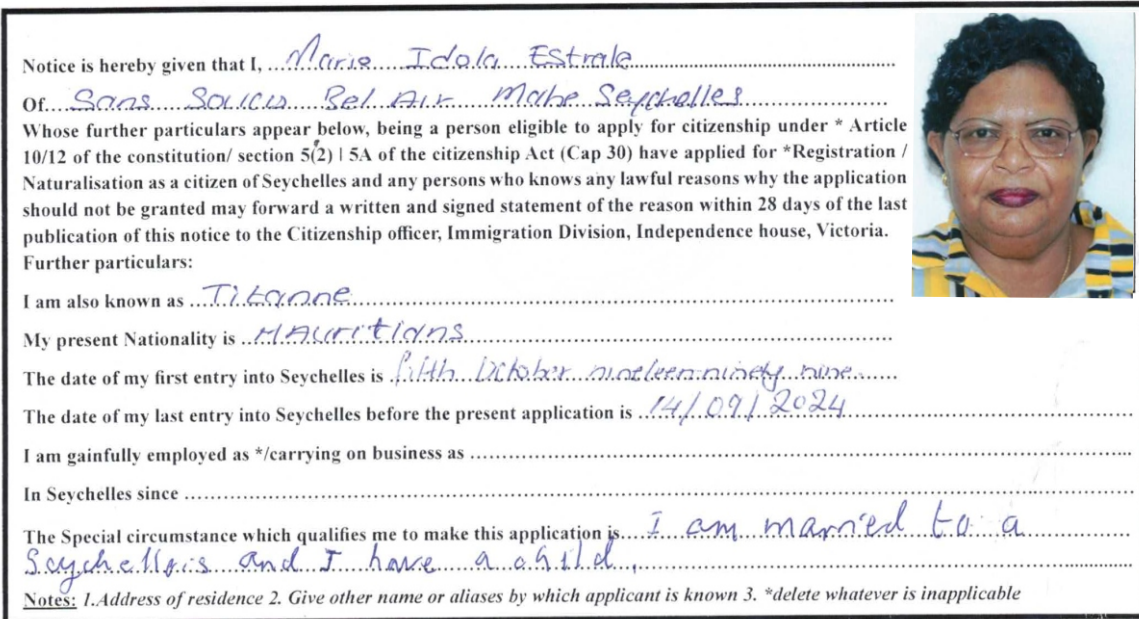 Notice is hereby given that I, ...Marie Idola Estrale...
Of...Sans Soucis Bel Air Mahe Seychelles...
Whose further particulars appear below, being a person eligible to apply for citizenship under * Article
10/12 of the constitution/ section 5(2) | 5A of the citizenship Act (Cap 30) have applied for *Registration /
Naturalisation as a citizen of Seychelles and any persons who knows any lawful reasons why the application
should not be granted may forward a written and signed statement of the reason within 28 days of the last
publication of this notice to the Citizenship officer, Immigration Division, Independence house, Victoria.
Further particulars:
I am also known as ...Titanne...
My present Nationality is ...Mauritians...
The date of my first entry into Seychelles is ...fifth October nineteen ninety nine...
The date of my last entry into Seychelles before the present application is ...14/09/2024...
I am gainfully employed as */carrying on business as ...
In Seychelles since ...
The Special circumstance which qualifies me to make this application is...I am married to a
Seychellois and I have a child.
Notes: 1.Address of residence 2. Give other name or aliases by which applicant is known 3. *delete whatever is inapplicable